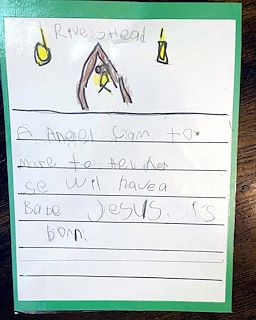 RiversHead
A Angel cam to
mare to tell her
se wil have a
Babe Jesus. is
born